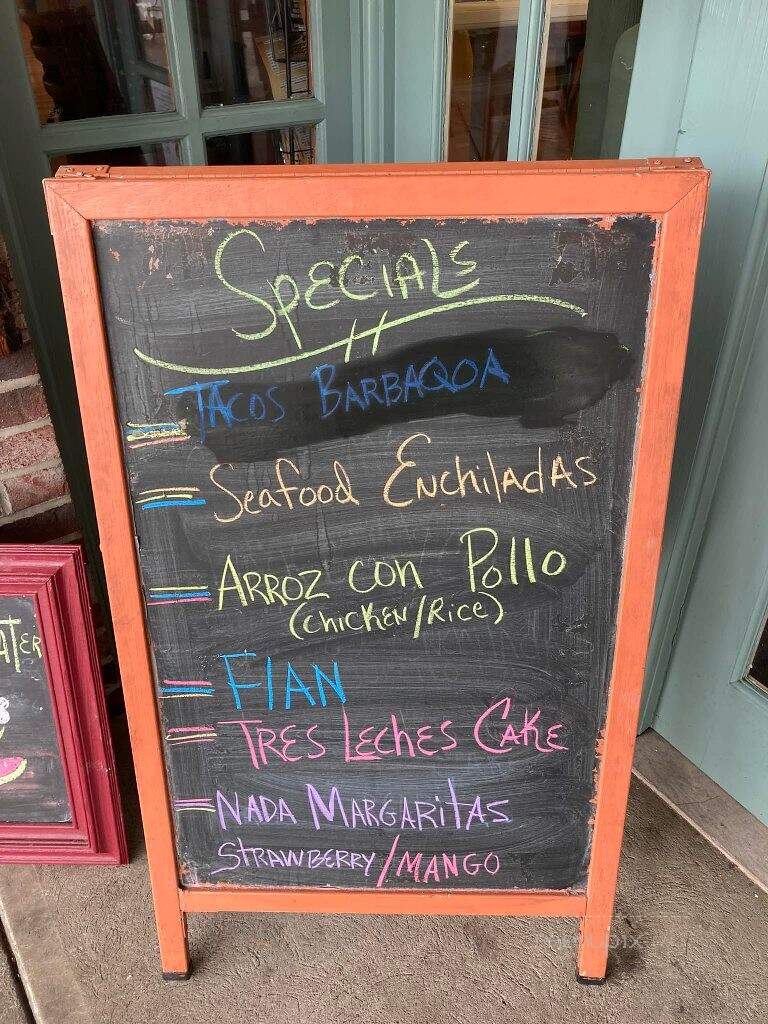 Specials
Tacos Barbaqoa
Seafood Enchiladas
Arroz con Pollo
(Chicken/Rice)
Flan
Tres Leches Cake
Nada Margaritas
Strawberry/Mango